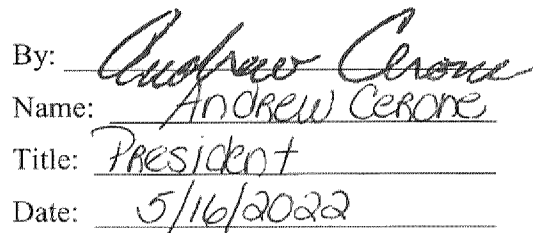 By: Andrew Cerone
Name: ANDREW CERONE
Title: PResident
Date: 5/16/2022